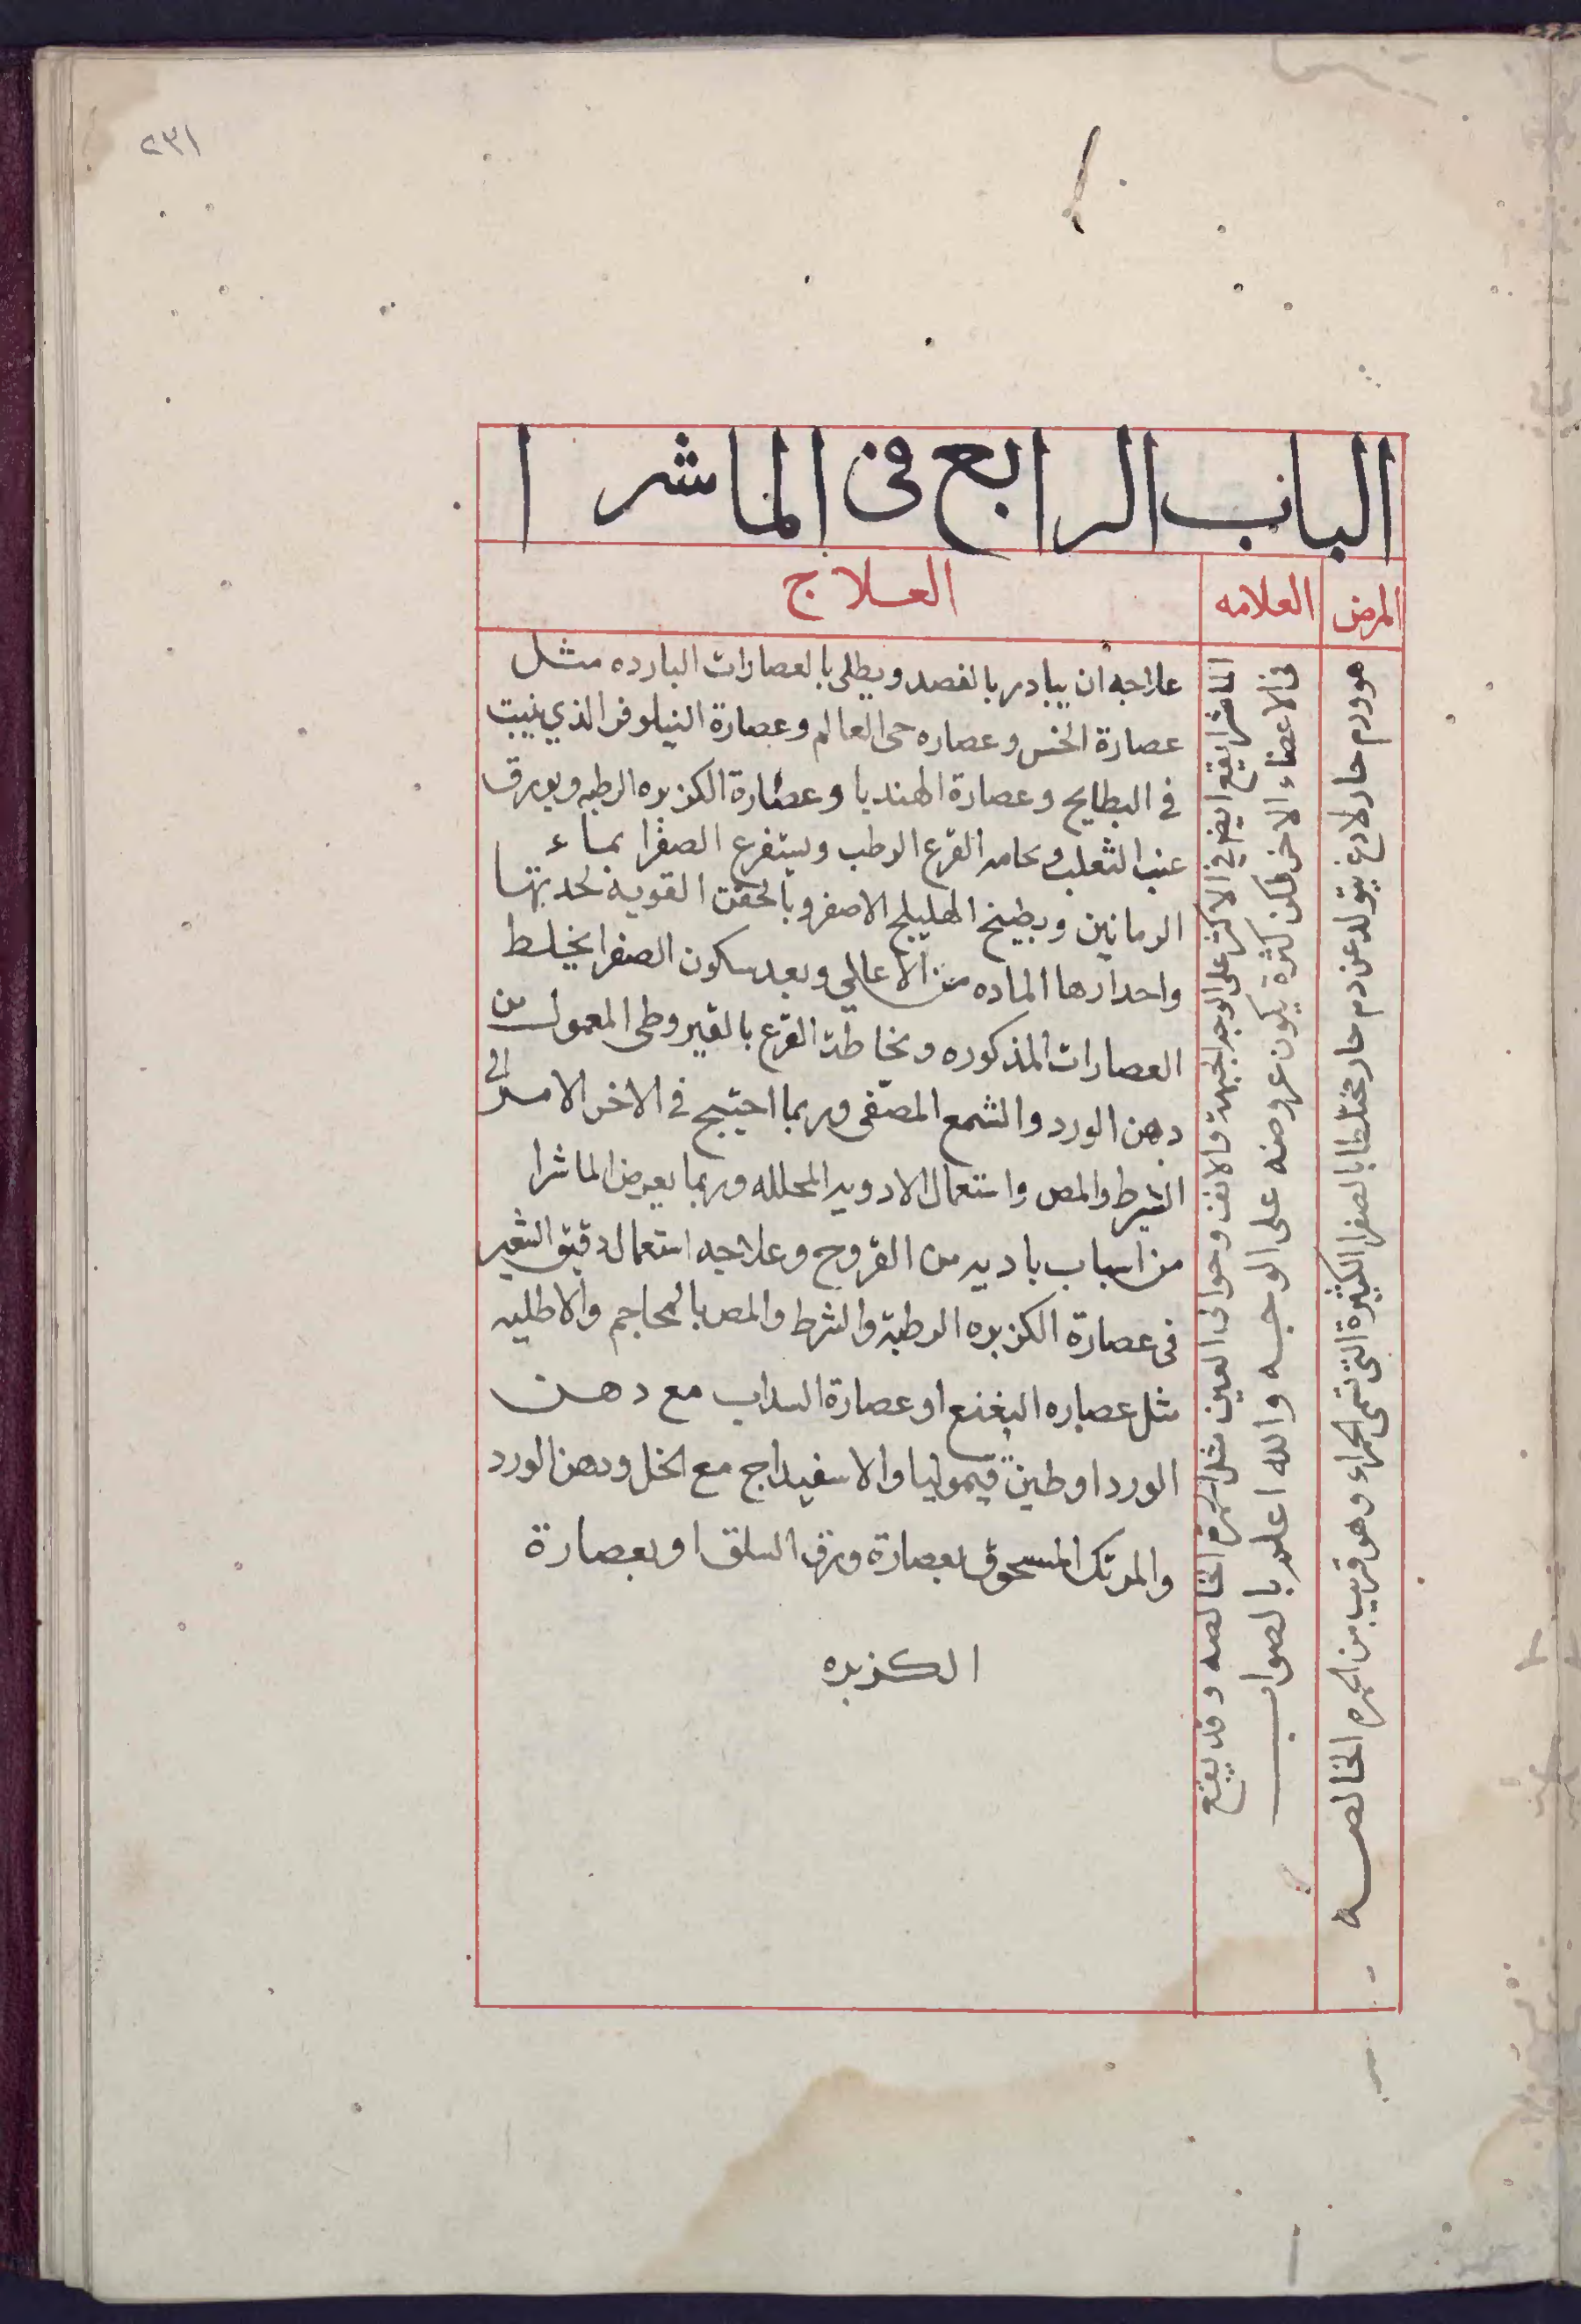 ٢٣١
الباب الرابع فى الماشرا
المرض
العلامه
العلاج
هو ورم حار لاذع يتولد عن دم حار مختلطا بالصفرا الكثيرة التى تسمى الحمراء وهو قريب من الحمره الخالصه
الماشرا يقع ايض فى الاكثر على الوجه والجبهة والانف وحوالى العين مثل الحمره الخالصه وقد يقع
فى الاعضاء الاخر لكن كثرة يكون عروضه على الوجه والله اعلم بالصواب
علاجه ان يبادر بالفصد ويطلى بالعصارات البارده مثل
عصارة الخس وعصاره حى العالم وعصارة النيلوفر الذي ينبت
في البطايح وعصارة الهندبا وعصارة الكزبره الرطبه وبورق
عنب الثعلب ونحامه القرع الرطب ويستفرغ الصفرا بماء
الرمانين وبطبيخ الهليلج الاصفر وبالحقن القوية لحدبتها
واحدارها الماده من الاعالي وبعد سكون الصفرا يخلط
العصارات المذكوره ونخاطة القرع بالقيروطى المعمول من
دهن الورد والشمع المصفى وربما احتيج في الاخر الامر الى
الشرط والمص واستعمال الادويه المحلله وربما يعرض الماشرا
من اسباب باديه من القروح وعلاجه استعمال دقيق الشعير
فى عصارة الكزبره الرطبة والشرط والمص بالمحاجم والاطليه
مثل عصاره النعنع او عصارة السداب مع دهن
الورد او طين قيموليا والاسفيداج مع الخل ودهن الورد
والمرتك المسحوق بعصارة ورق السلق او بعصارة
الكزبره